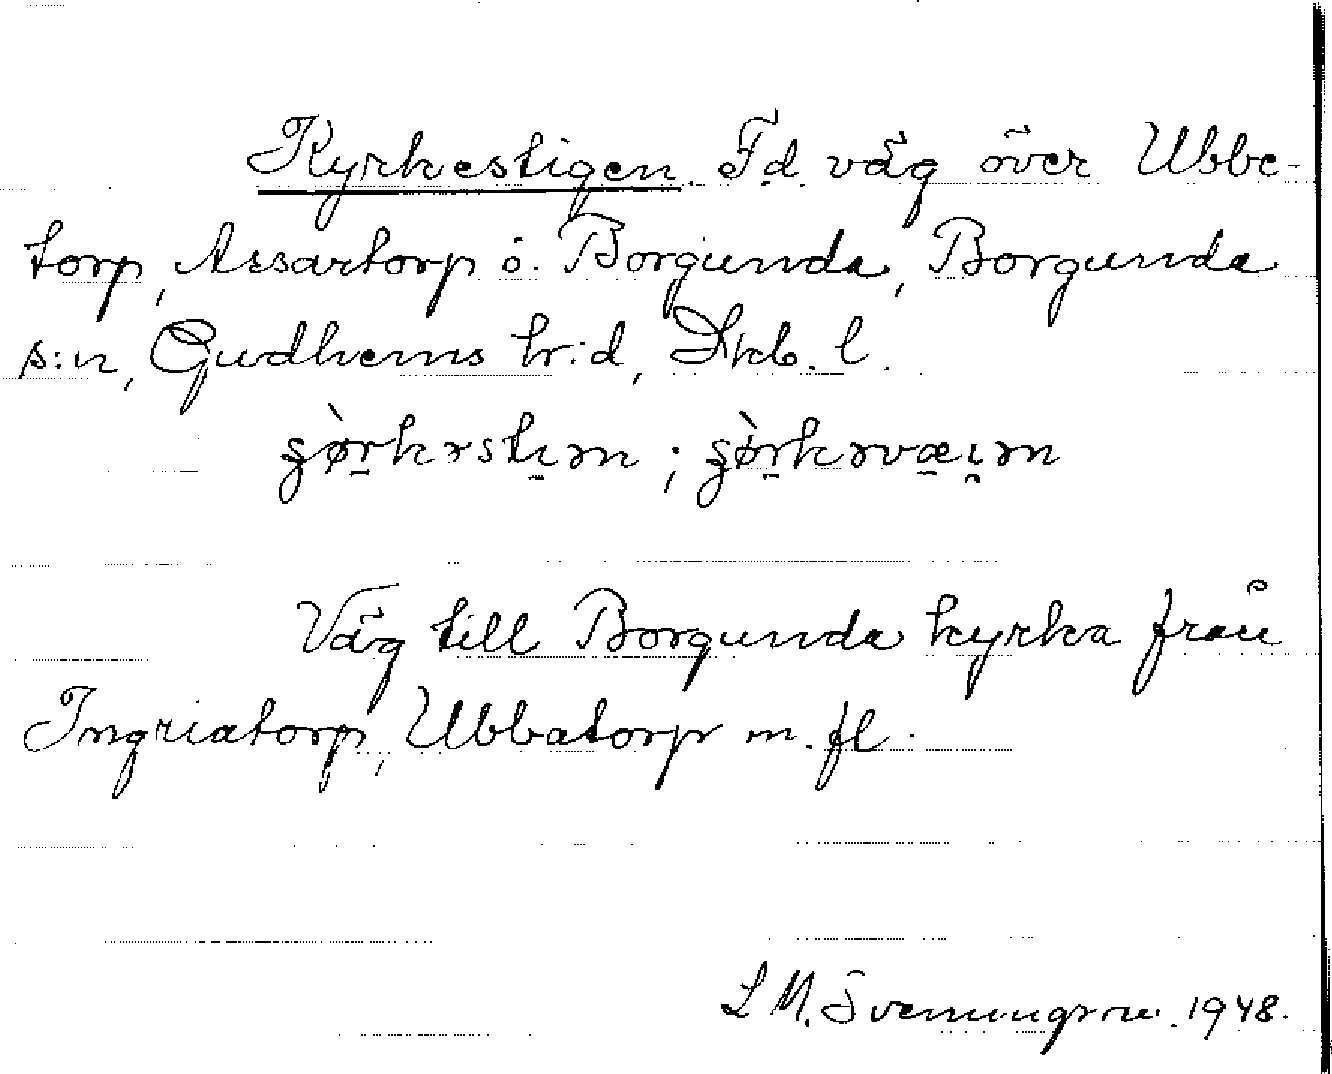 Kyrkestigen. F.d. väg över Ubbe-
torp, Assartorp o. Borgunda, Borgunda
s:n, Gudhems hr:d, Skb. l.
ʂø̀rkəstɩ̠ən ; ʂø̀rkəvæɩ̯ən
Väg till Borgunda kyrka från
Ingriatorp, Ubbatorp m. fl.
L M. Svenungsson. 1948.